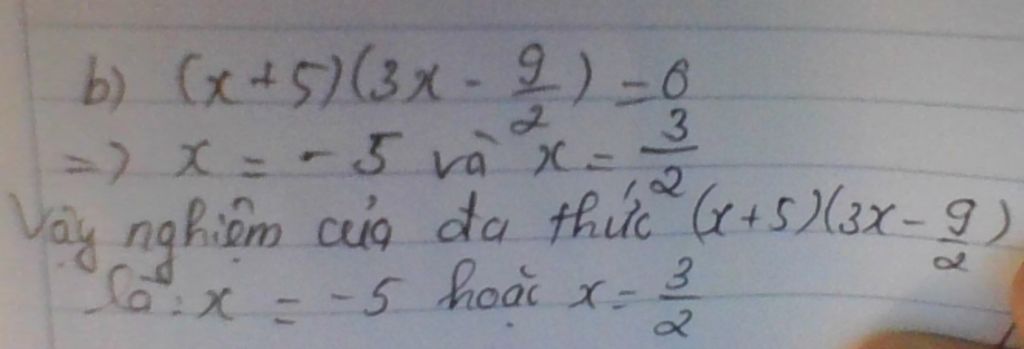 b) (x+5)(3x - 9/2) = 0
=> x = -5 và x = 3/2
Vậy nghiệm của đa thức (x+5)(3x - 9/2)
là: x = -5 hoặc x = 3/2